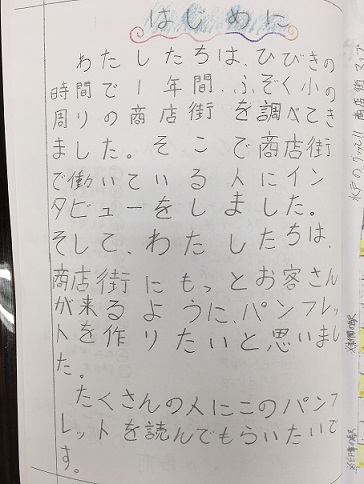 はじめに
わたしたちは、ひびきの
時間で1年間、ふぞく小の
周りの商店街を調べてき
ました。そこで商店街
で働いている人にイン
タビューをしました。
そして、わたしたちは、
商店街にもっとお客さん
が来るように、パンフレッ
トを作りたいと思いまし
た。
たくさんの人にこのパンフ
レットを読んでもらいたいで
す。